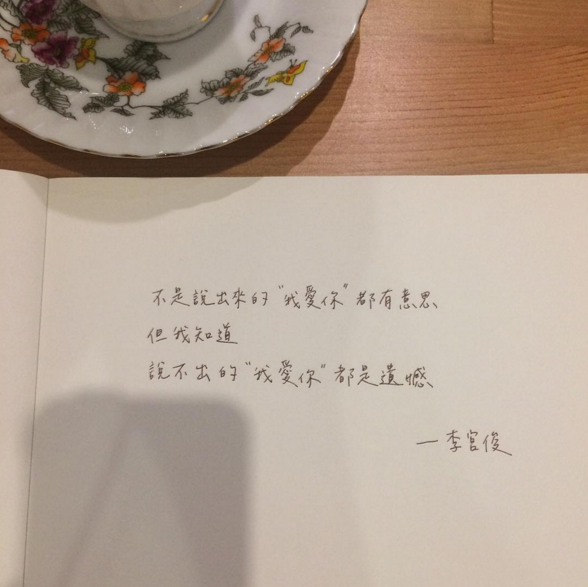 不是說出來的“我愛你”都有意思、
但我知道
說不出的“我愛你”都是遺憾、
—李宮俊